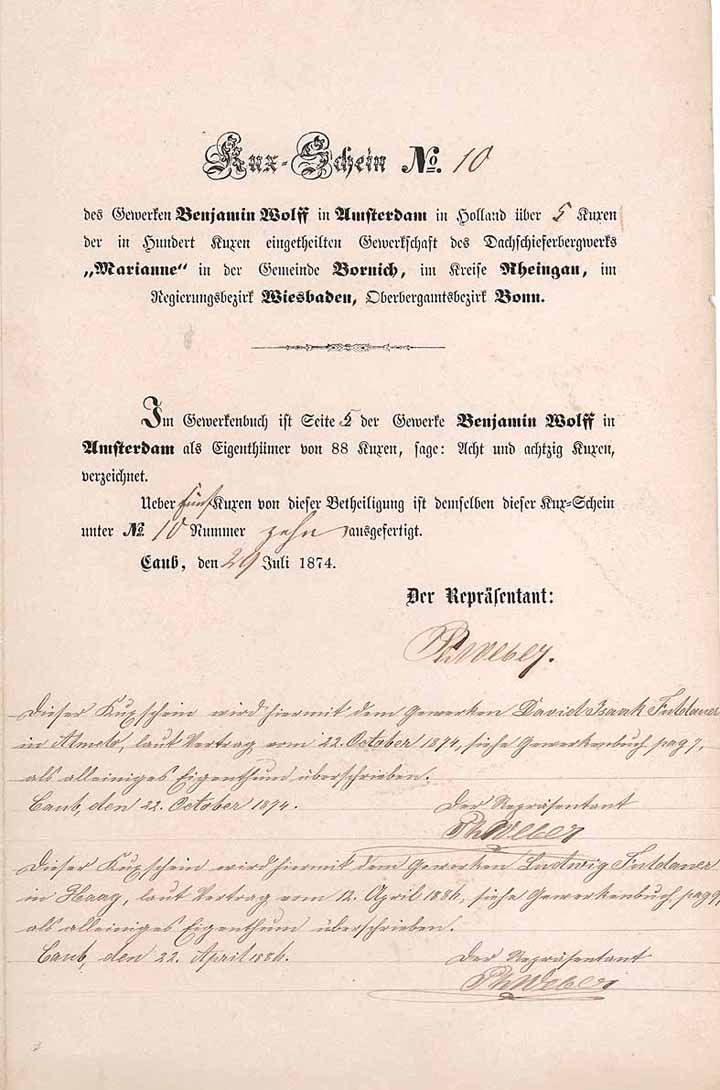 Kux-Schein No. 10
des Gewerken Benjamin Wolff in Amsterdam in Holland über 5 Kuxen
der in Hundert Kuxen eingetheilten Gewerkschaft des Dachschieferbergwerks
„Marianne“ in der Gemeinde Bornich, im Kreise Rheingau, im
Regierungsbezirk Wiesbaden, Oberbergamtsbezirk Bonn.
Im Gewerkenbuch ist Seite 5 der Gewerke Benjamin Wolff in
Amsterdam als Eigenthümer von 88 Kuxen, sage: Acht und achtzig Kuxen,
verzeichnet.
Ueber fünf Kuxen von dieser Betheiligung ist demselben dieser Kux-Schein
unter No 10 Nummer zehn ausgefertigt.
Caub, den 29 Juli 1874.
Der Repräsentant:
Ph Weber.
Dieser Kuxschein wird hiermit dem Gewerken David Isaak Fuldauer
in Almelo, laut Vertrag vom 22. October 1874, siehe Gewerkenbuch pag 7,
als alleiniges Eigenthum überschrieben.
Caub, den 22. October 1874.
Der Repräsentant
Ph Weber
Dieser Kuxschein wird hiermit dem Gewerken Ludwig Fuldauer
in Haag, laut Vertrag vom 12. April 1886, siehe Gewerkenbuch pag 9,
als alleiniges Eigenthum überschrieben.
Caub, den 22. April 1886.
Der Repräsentant
Ph Weber